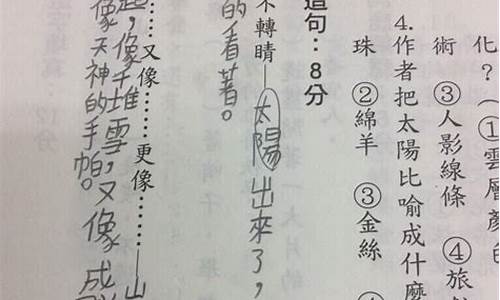 化？（①雲層顏
術　③人影線條　④旅
4.作者把太陽比喻成什麼
珠　②綿羊　③金絲
造句：8分
不轉睛—太陽出來了，
的看著。
……又像……更像……—山
，像千堆雪，又像 成
像天神的手帕。